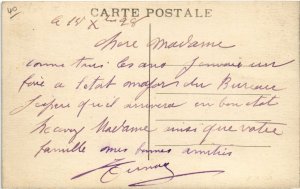 40
CARTE POSTALE
a 14 X 28
chere Madame
comme tous les ans J'envoie un
foie a l'etat major du Bureau
J'espere qu'il arrivera en bon etat
Madame ainsi que votre
famille mes bonnes amitiés